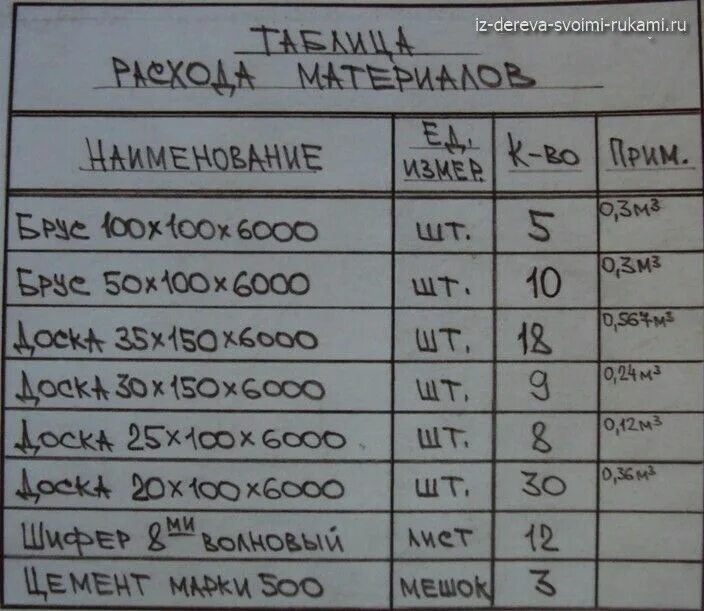 iz-dereva-svoimi-rukami.ru
ТАБЛИЦА
РАСХОДА МАТЕРИАЛОВ
НАИМЕНОВАНИЕ ЕД. ИЗМЕР. К-ВО ПРИМ.
БРУС 100х100х6000 ШТ. 5 0,3м³
БРУС 50х100х6000 ШТ. 10 0,3м³
ДОСКА 35х150х6000 ШТ. 18 0,567м³
ДОСКА 30х150х6000 ШТ. 9 0,24м³
ДОСКА 25х100х6000 ШТ. 8 0,12м³
ДОСКА 20х100х6000 ШТ. 30 0,36м³
ШИФЕР 8МИ ВОЛНОВЫЙ ЛИСТ 12
ЦЕМЕНТ МАРКИ 500 МЕШОК 3